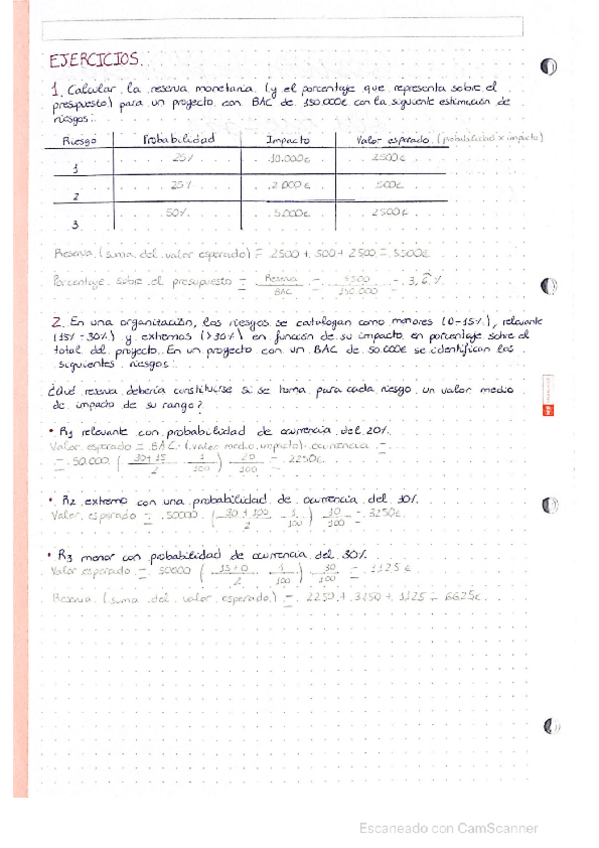 EJERCICIOS.
1. Calcular la reserva monetaria (y el porcentaje que representa sobre el
presupuesto) para un proyecto con BAC de 150.000€ con la siguiente estimación de
riesgos:
Riesgo Probabilidad Impacto Valor esperado (probabilidad x impacto)
1 25% 10.000€ 2500€
2 25% 2.000€ 500€
3 50% 5.000€ 2500€
Reserva (suma del valor esperado) = 2500 + 500 + 2500 = 5500€
Porcentaje sobre el presupuesto = Reserva / BAC = 5500 / 150.000 = 3,6̂ %
2. En una organización, los riesgos se catalogan como menores (0-15%), relevante
(15% - 30%) y extremos (>30%) en función de su impacto en porcentaje sobre el
total del proyecto. En un proyecto con un BAC de 50.000€ se identifican los
siguientes riesgos:
¿Qué reserva debería constituirse si se toma para cada riesgo un valor medio
de impacto de su rango?
• R1 relevante con probabilidad de ocurrencia del 20%.
Valor esperado = BAC · (valor medio impacto) · ocurrencia =
= 50.000 · ( 30+15 / 2 · 1 / 100 ) 20 / 100 = 2250€
• R2 extremo con una probabilidad de ocurrencia del 10%.
Valor esperado = 50000 · ( 30 + 100 / 2 · 1 / 100 ) 10 / 100 = 3250€
• R3 menor con probabilidad de ocurrencia del 30%.
Valor esperado = 50000 ( 15+0 / 2 · 1 / 100 ) 30 / 100 = 1125€
Reserva (suma del valor esperado) = 2250 + 3250 + 1125 = 6625€
Escaneado con CamScanner